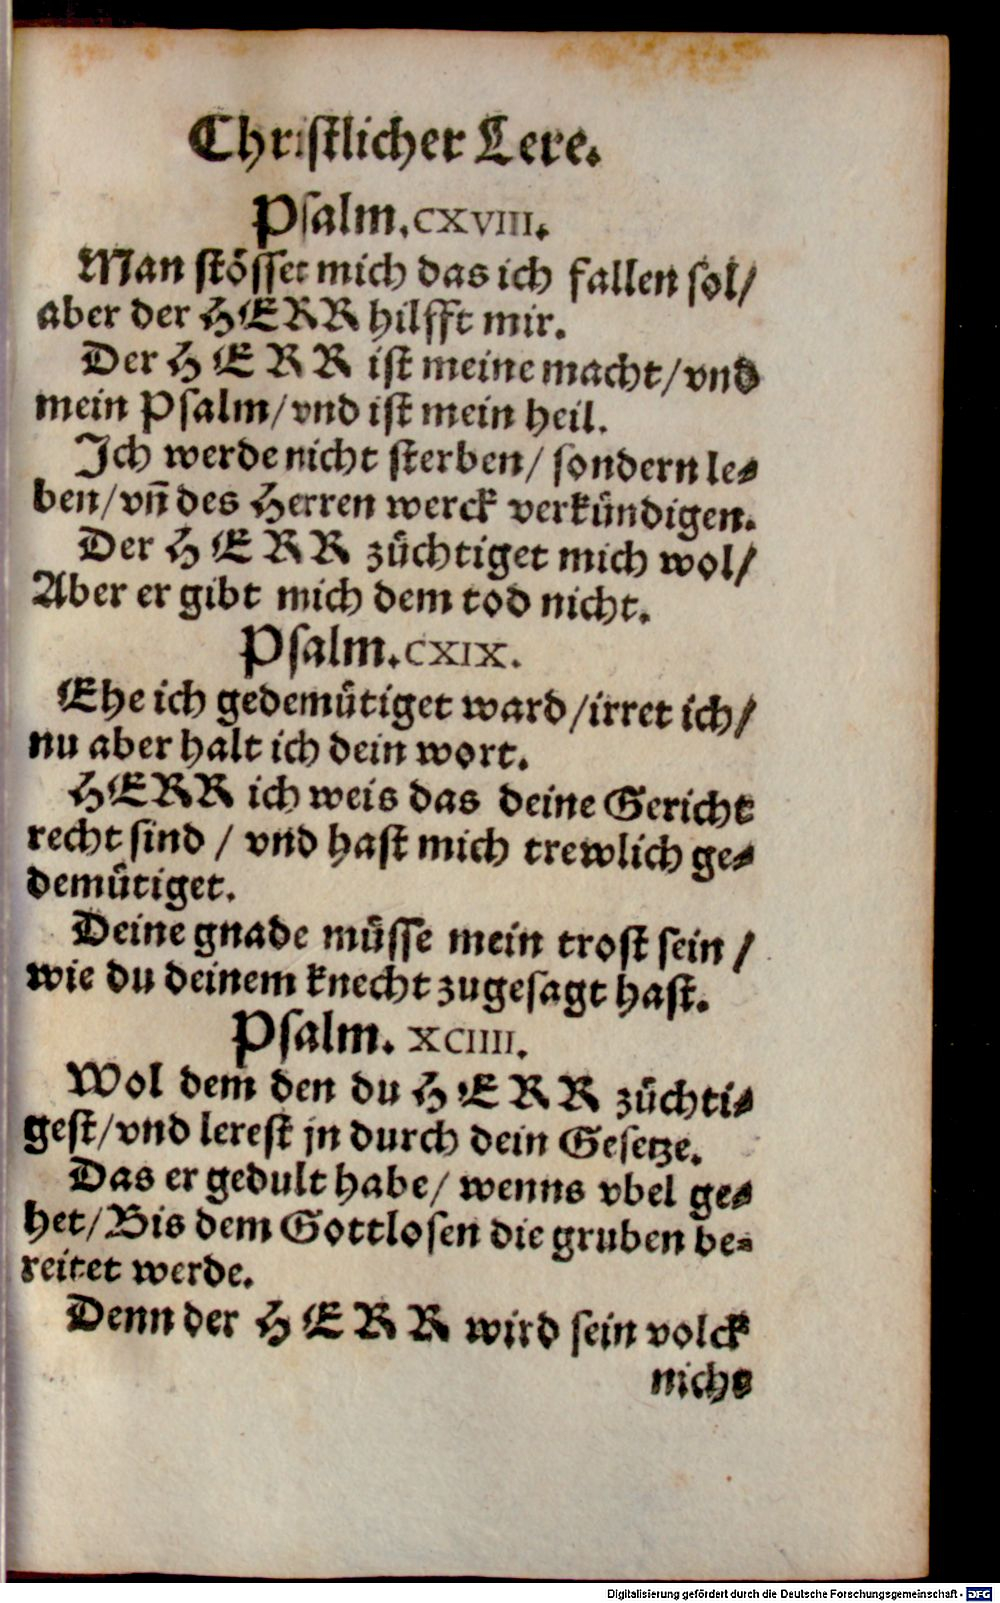 Chriſtlicher Lere.
Pſalm. CXVIII.
Man ſtöſſet mich das ich fallen ſol/
aber der HERR hilfft mir.
Der HERR iſt meine macht/vnd
mein Pſalm/vnd iſt mein heil.
Ich werde nicht ſterben/ ſondern le⸗
ben/vn̄ des Herren werck verkündigen.
Der HERR züchtiget mich wol/
Aber er gibt mich dem tod nicht.
Pſalm. CXIX.
Ehe ich gedemütiget ward/irret ich/
nu aber halt ich dein wort.
HERR ich weis das deine Gericht
recht ſind / vnd haſt mich trewlich ge⸗
demütiget.
Deine gnade müſſe mein troſt ſein /
wie du deinem knecht zugeſagt haſt.
Pſalm. XCIIII.
Wol dem den du HERR züchti⸗
geſt/vnd lereſt jn durch dein Geſetze.
Das er gedult habe/ wenns vbel ge⸗
het/Bis dem Gottloſen die gruben be⸗
reitet werde.
Denn der HERR wird ſein volck
nicht
Digitalisierung gefördert durch die Deutsche Forschungsgemeinschaft - DFG